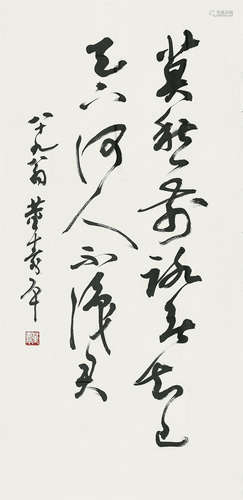 莫愁前路無知己
天下何人不識君
八十九翁董壽平